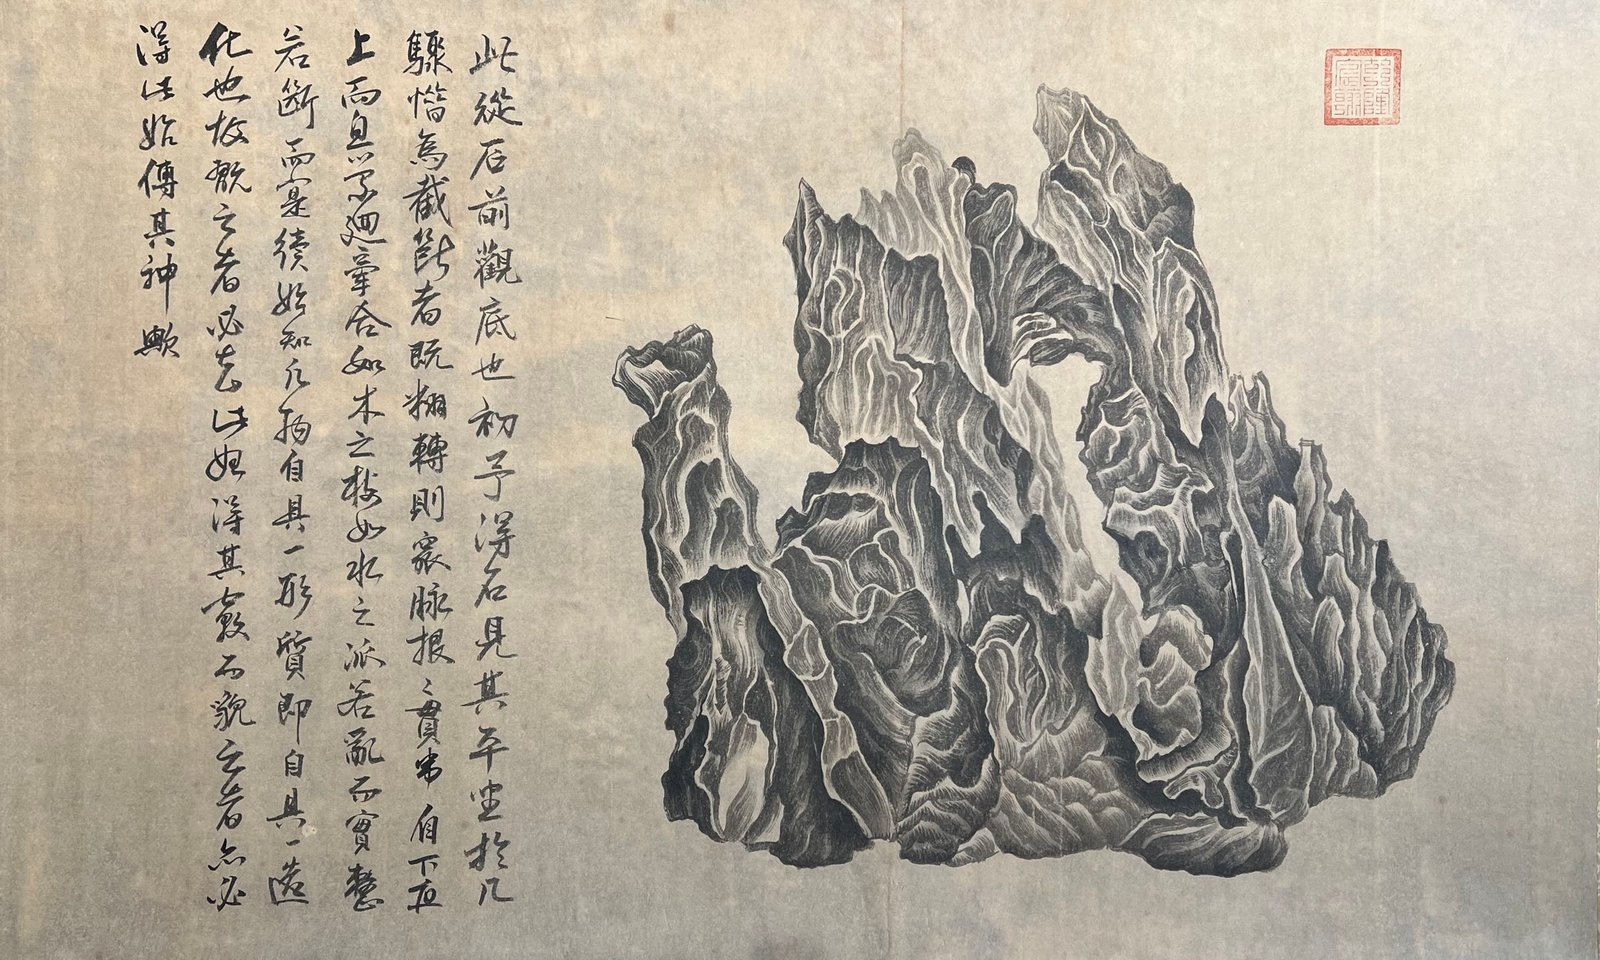 此從后前觀底也初予得石見其平坐於几
驟惜為截斷者既糊轉則窾脉根〻貫串自下而
上而息䋣廻牽合如木之枝如水之派若亂而實整
若斷而寔續始知凡物自具一形質即自具一造
化也故觀之者必去此始得其竅而貌之者亦必
得此始傳其神歟